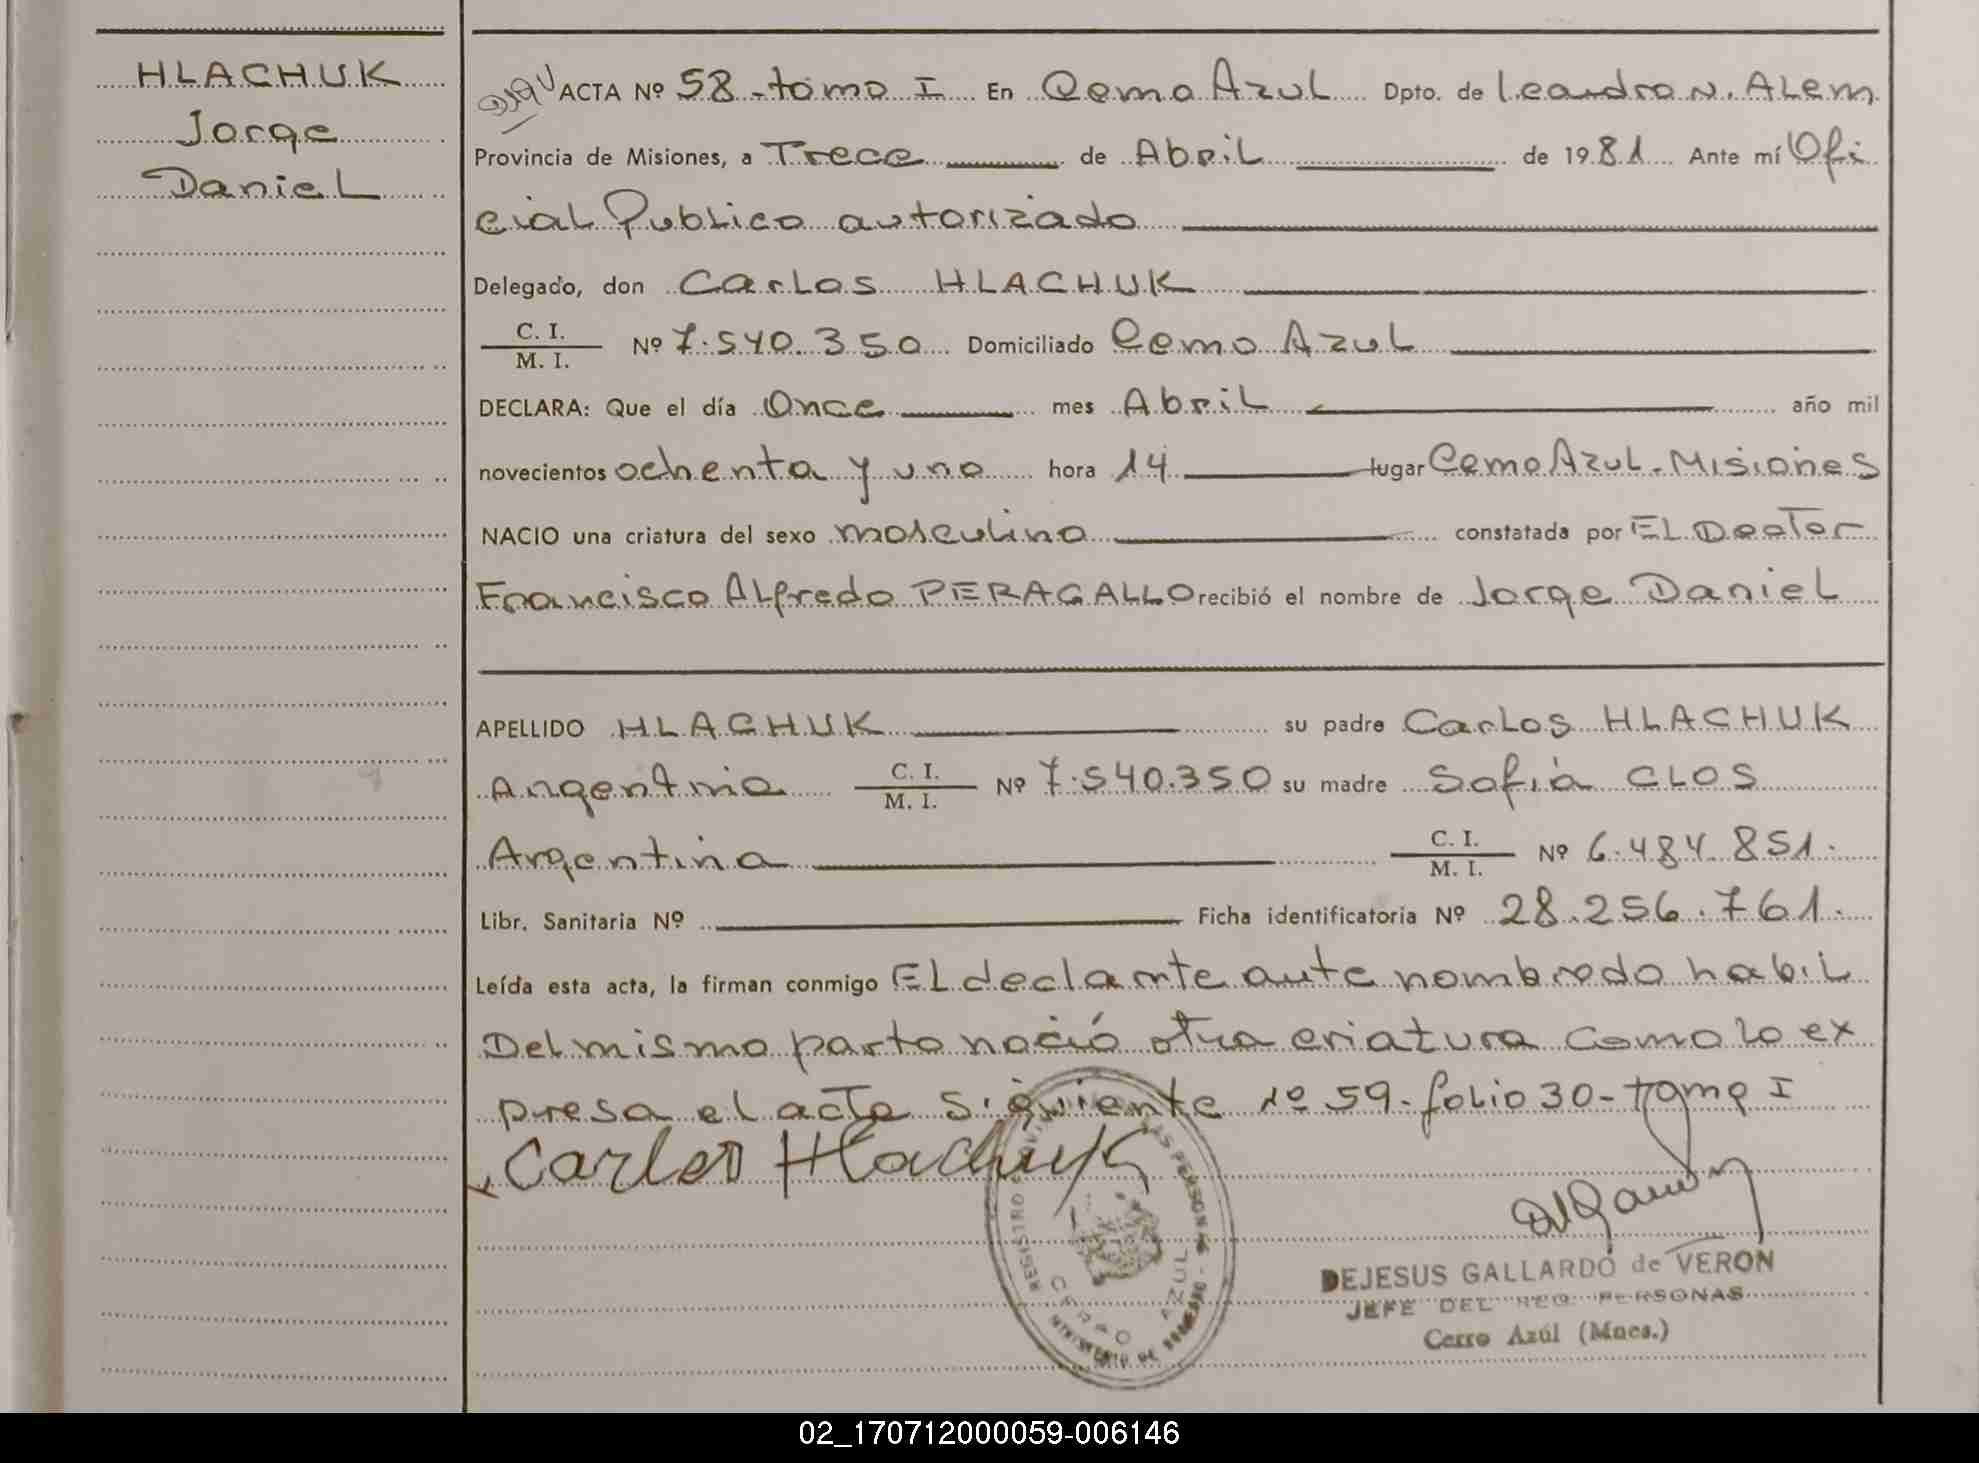 HLACHUK
Jorge
Daniel
ACTA Nº 58-tomo I En Cerro Azul Dpto. de Leandro N. ALem
Provincia de Misiones, a Trece de Abril de 1981 Ante mí Ofi
cial Publico autorizado
Delegado, don Carlos HLACHUK
C. I.
M. I. Nº 7.540.350 Domiciliado Cerro Azul
DECLARA: Que el día Once mes Abril año mil
novecientos ochenta y uno hora 14 lugar Cerro Azul-Misiones
NACIO una criatura del sexo masculino constatada por El Doctor
Francisco Alfredo PERAGALLO recibió el nombre de Jorge Daniel
APELLIDO HLACHUK su padre Carlos HLACHUK
Argentino C. I.
M. I. Nº 7.540.350 su madre Sofia CLOS
Argentina C. I.
M. I. Nº 6.484.851.
Libr. Sanitaria Nº Ficha identificatoria Nº 28.256.761.
Leída esta acta, la firman conmigo El declarnte ante nombrado habil
Del mismo parto nació otra criatura como lo ex
presa el acta siguiente nº 59-folio 30-tomo I
Carlos Hlachuk
REGISTRO PERSONAS
CERRO AZUL
MINISTERIO DE GOBIERNO
DEJESUS GALLARDO de VERON
JEFE DEL REG. PERSONAS
Cerro Azúl (Mnes.)
02_170712000059-006146